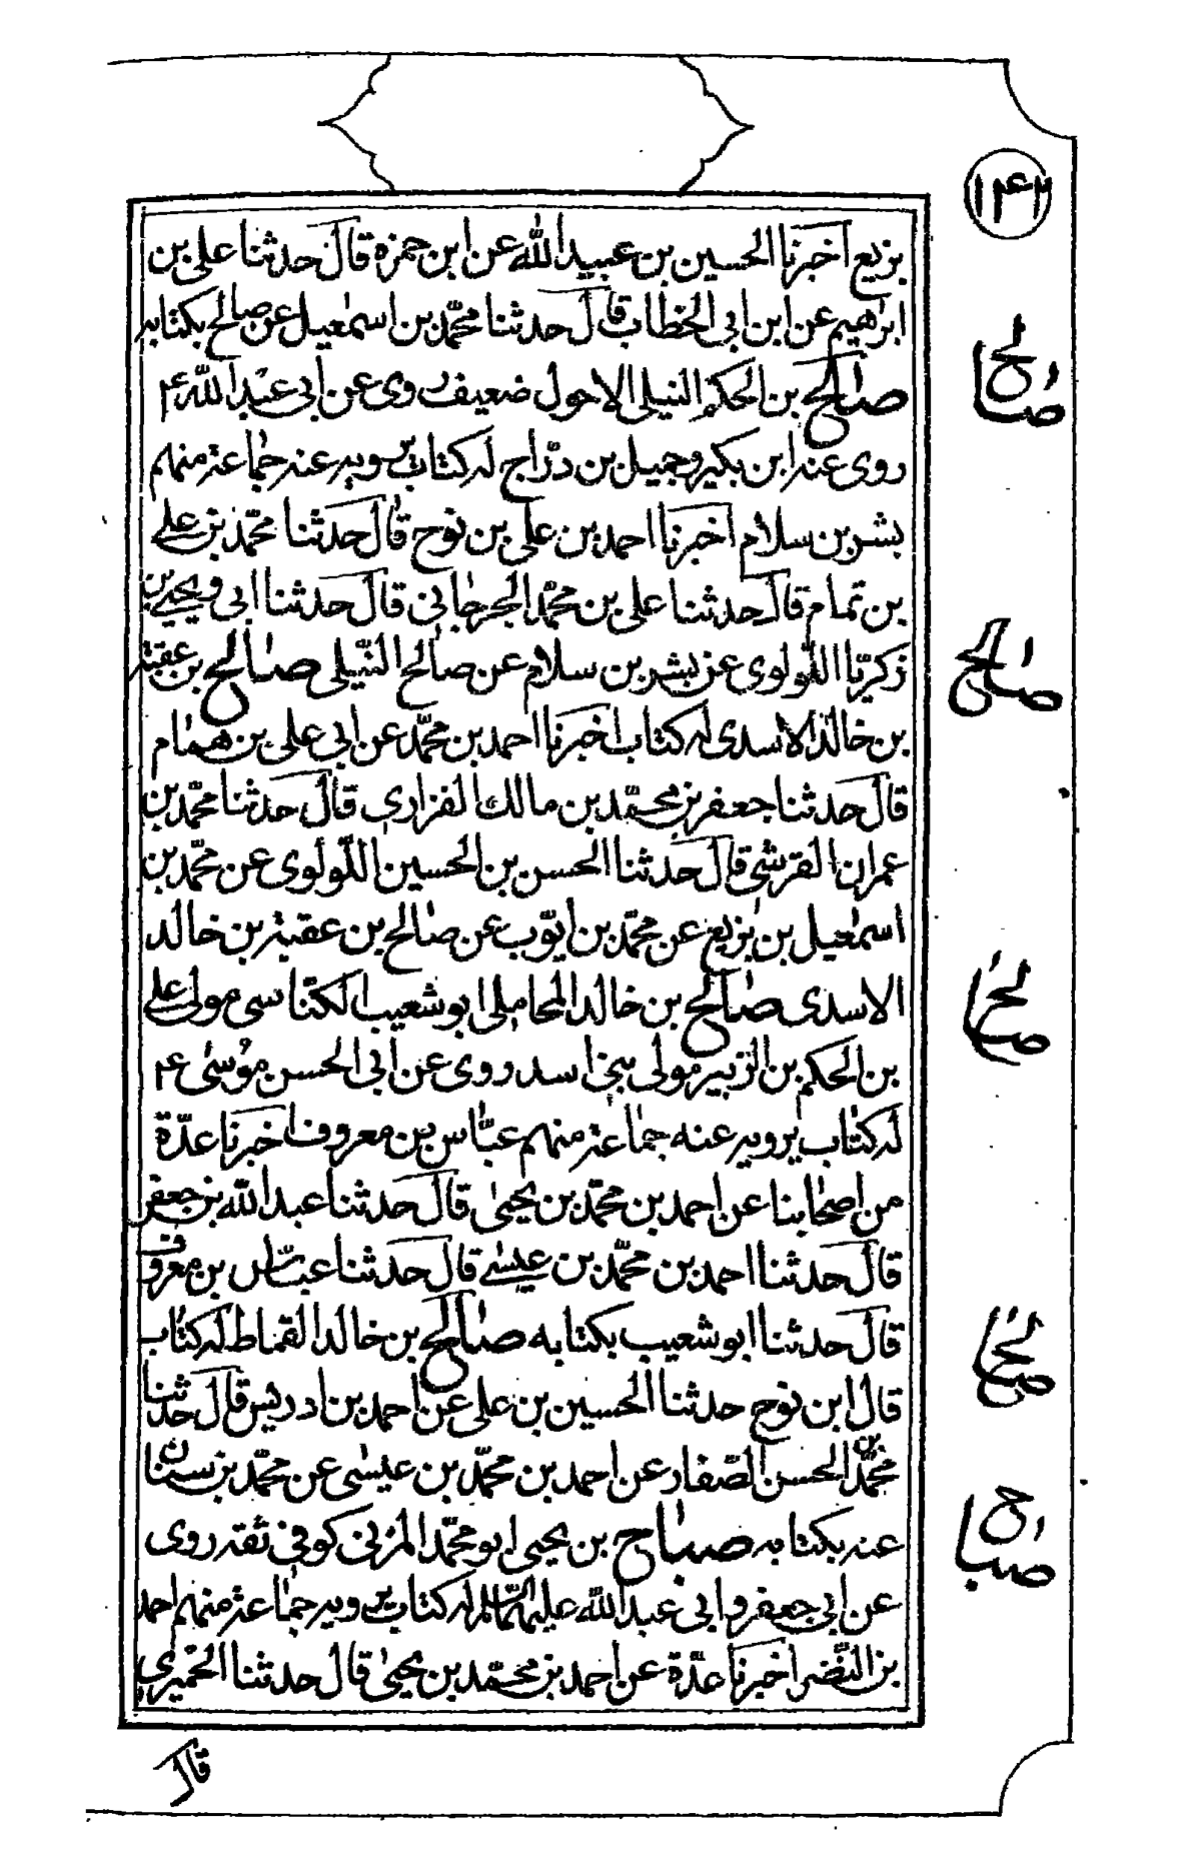 ١٤٢
بزيع اخبرنا الحسين بن عبيد الله عن ابن حمزه قال حدثنا على بن
ابرٰهيم عن ابن ابى الخطاب قال حدثنا محمّد بن اسمٰعيل عن صالح بكتابه
صالح بن الحكم النيلى الاحول ضعيف روى عن ابى عبد الله ع
صالح
روى عنه ابن بكير وجميل بن درّاج له كتاب يرويه عنه جماعة منهم
بشر بن سلام اخبرنا احمد بن على بن نوح قال حدثنا محمّد بن على
بن تمام قال حدثنا على بن محمّد الجرجانى قال حدثنا ابى ويحيى بن
زكريّا اللّولوى عن بشر بن سلام عن صالح النّيلى صالح بن عقبة
صالح
بن خالد الاسدى له كتاب اخبرنا احمد بن محمّد عن ابى على بن همام
قال حدثنا جعفر بن محمّد بن مالك الفزارى قال حدثنا محمّد بن
عمران القرشى قال حدثنا الحسن بن الحسين اللّولوى عن محمّد بن
اسمٰعيل بن بزيع عن محمّد بن ايّوب عن صالح بن عقبة بن خالد
الاسدى صالح بن خالد المحاملى ابو شعيب الكناسى مولى على
صالح
بن الحكم بن الزبير مولى بنى اسد روى عن ابى الحسن موسٰى ع
له كتاب يرويه عنه جماعة منهم عبّاس بن معروف اخبرنا عدّة
من اصحابنا عن احمد بن محمّد بن يحيىٰ قال حدثنا عبد الله بن جعفر
قال حدثنا احمد بن محمّد بن عيسى قال حدثنا عبّاس بن معروف
قال حدثنا ابو شعيب بكتابه صالح بن خالد القماط له كتاب
صالح
قال ابن نوح حدثنا الحسين بن على عن احمد بن ادريس قال حدثنا
محمّد بن الحسن الصّفار عن احمد بن محمّد بن عيسٰى عن محمّد بن سنان
عنه بكتابه صباح بن يحيى ابو محمّد المزنى كوفى ثقة روى
صباح
عن ابى جعفر وابى عبد الله عليهما السّلام له كتاب يرويه جماعة منهم احمد
بن النّضر اخبرنا عدّة عن احمد بن محمّد بن يحيىٰ قال حدثنا الحميرى
قال